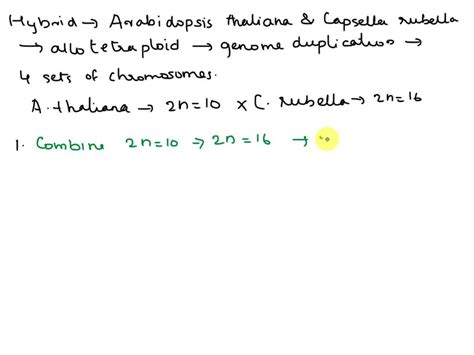 Hybrid → Arabidopsis thaliana & Capsella rubella
→ allotetraploid → genome duplication →
4 sets of chromosomes.
A. thaliana → 2n=10 × C. rubella → 2n=16
1. Combine 2n=10 → 2n=16 →